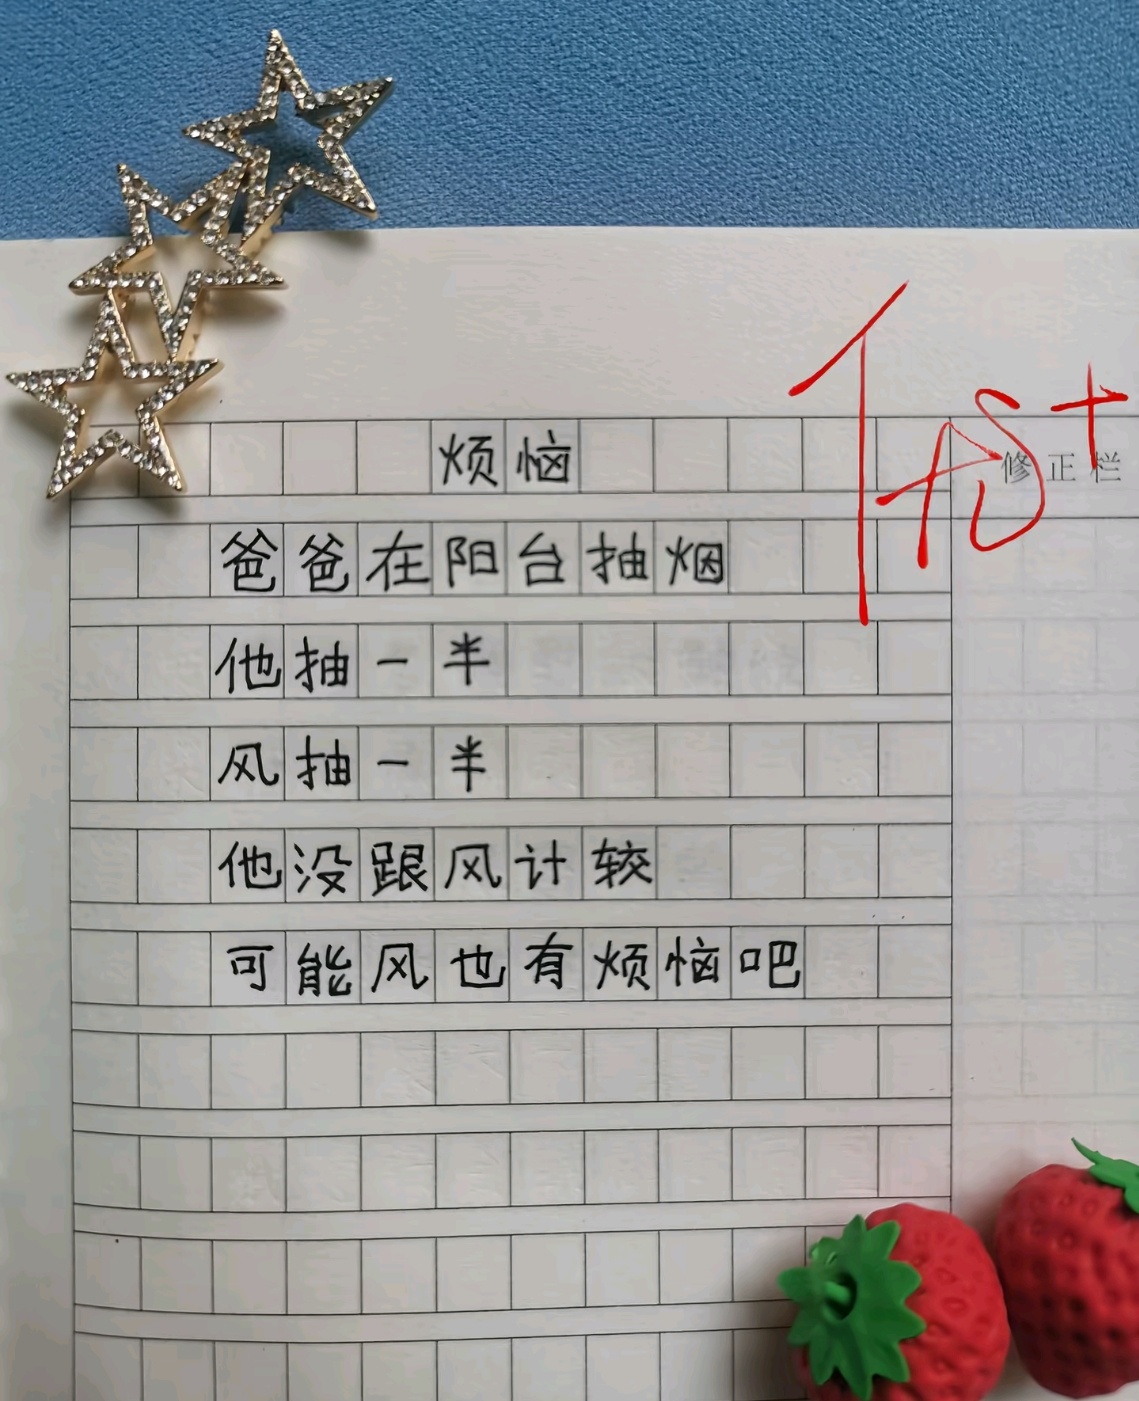 烦恼
修正栏
爸爸在阳台抽烟
他抽一半
风抽一半
他没跟风计较
可能风也有烦恼吧